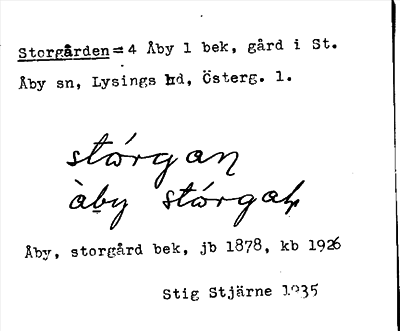 Storgården = 4 Åby 1 bek, gård i St.
Åby sn, Lysings hd, Österg. l.
stórgan
àby stórgan
Åby, storgård bek, jb 1878, kb 1926
Stig Stjärne 1935